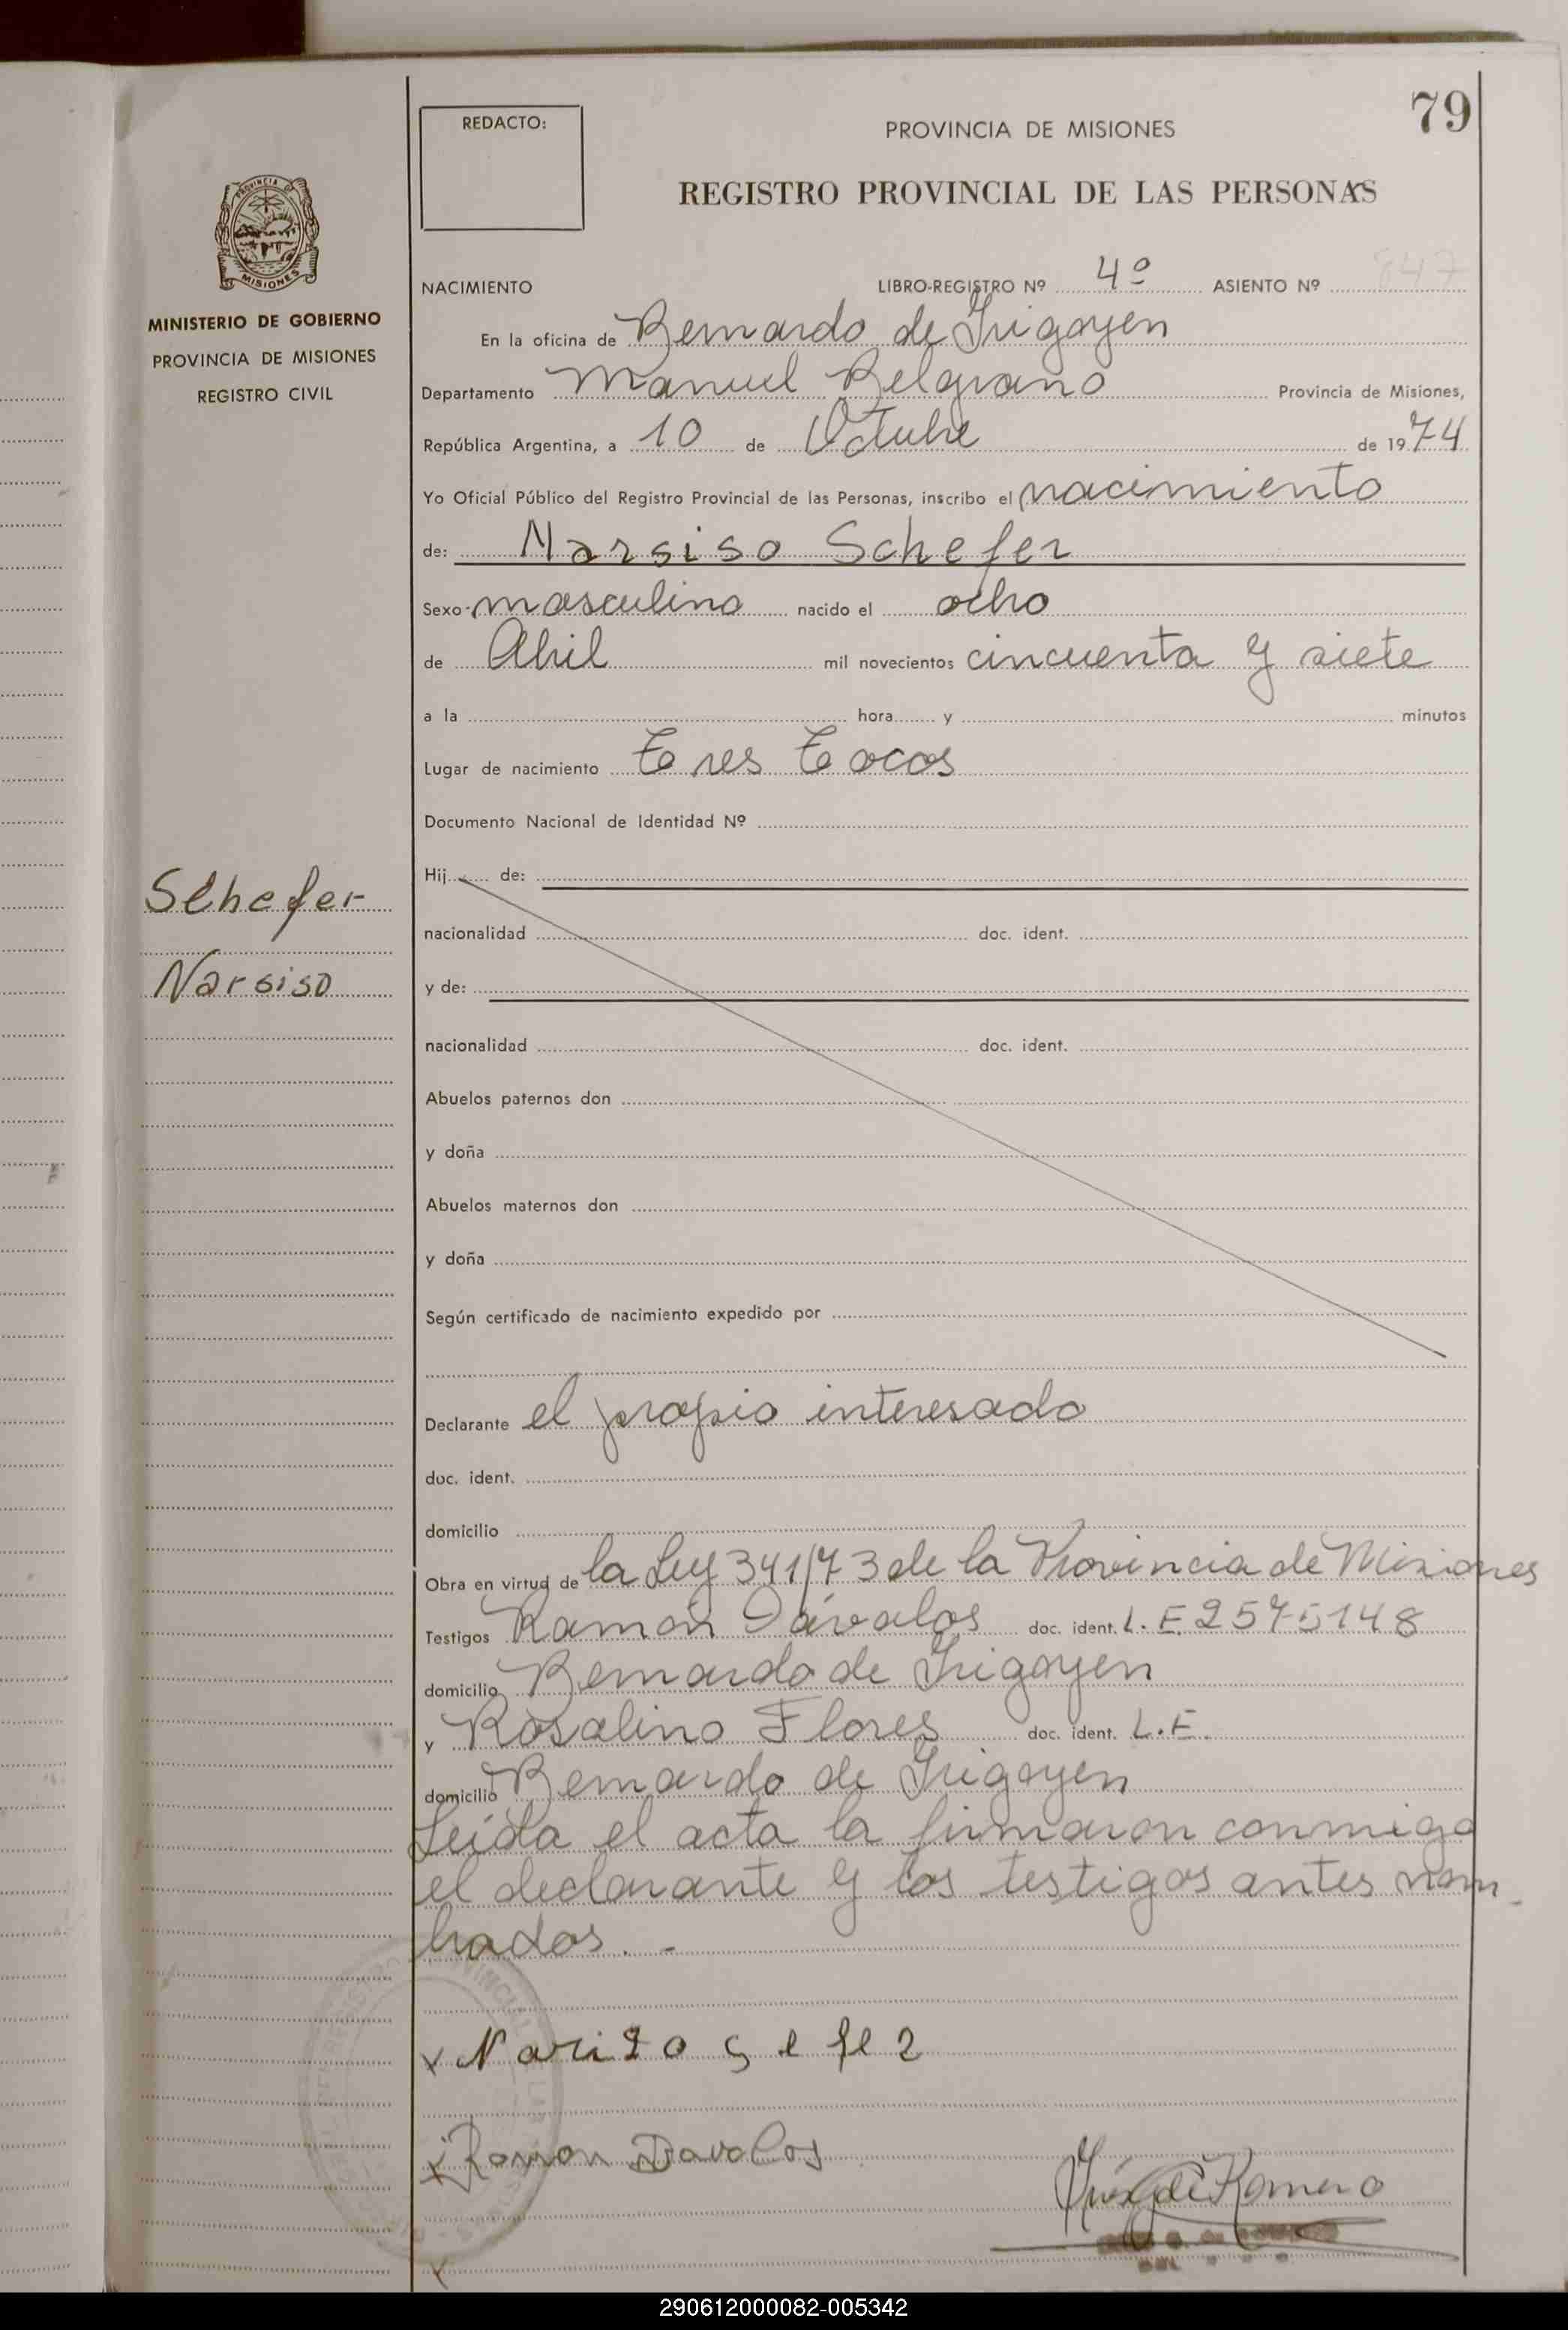 79
REDACTO:
PROVINCIA DE MISIONES
REGISTRO PROVINCIAL DE LAS PERSONAS
PROVINCIA D
MISIONES
MINISTERIO DE GOBIERNO
PROVINCIA DE MISIONES
REGISTRO CIVIL
NACIMIENTO LIBRO-REGISTRO Nº 4º ASIENTO Nº 847
En la oficina de Bernardo de Irigoyen
Departamento Manuel Belgrano Provincia de Misiones,
República Argentina, a 10 de Octubre de 1974
Yo Oficial Público del Registro Provincial de las Personas, inscribo el nacimiento
de: Narsiso Schefer
Sexo masculino nacido el ocho
de Abril mil novecientos cincuenta y siete
a la hora y minutos
Lugar de nacimiento Tres Tocos
Documento Nacional de Identidad Nº
Hij de:
Schefer
nacionalidad doc. ident.
Narsiso
y de:
nacionalidad doc. ident.
Abuelos paternos don
y doña
Abuelos maternos don
y doña
Según certificado de nacimiento expedido por
Declarante el propio interesado
doc. ident.
domicilio
Obra en virtud de la Ley 341/73 de la Provincia de Misiones
Testigos Ramón Dávalos doc. ident. L.E. 2575148
domicilio Bernardo de Irigoyen
y Rosalino Flores doc. ident. L.E.
domicilio Bernardo de Irigoyen
Leída el acta la firmaron conmigo
el declarante y los testigos antes nom-
brados. -
x Narizo Sefer
x Ramon Davalos
de Romero
x
290612000082-005342